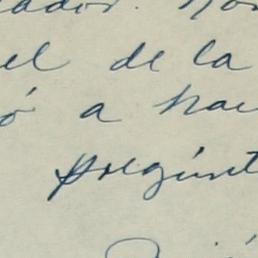 ador. No
el de la
ó a hac
pregunt